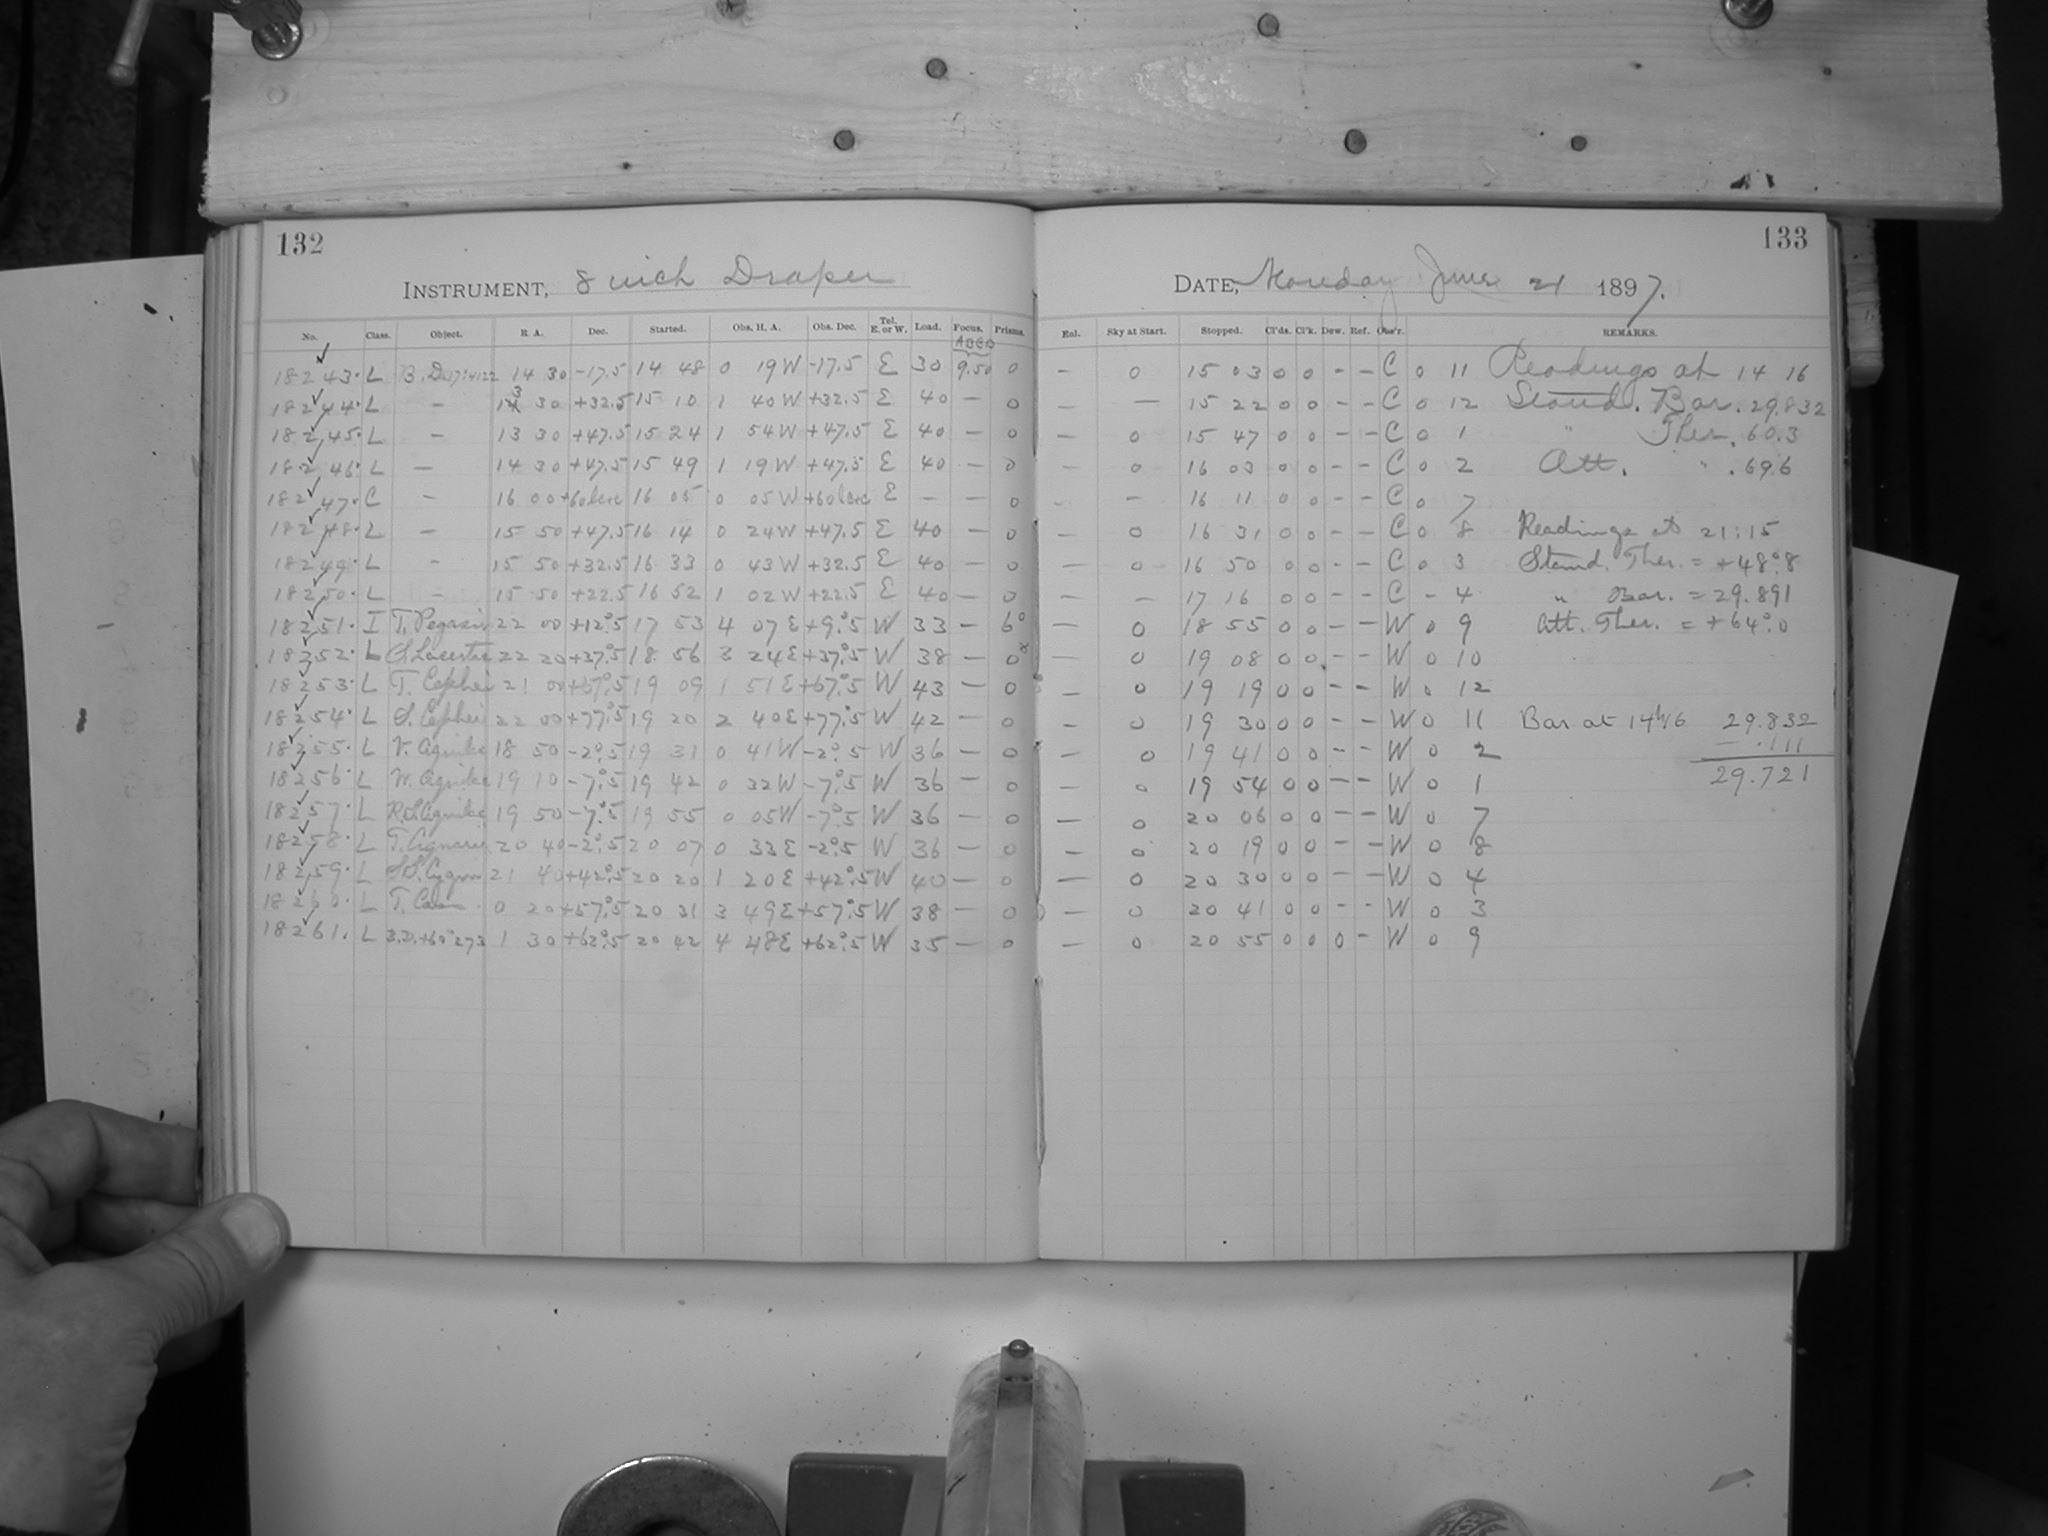 132
133
INSTRUMENT, 8 inch Draper
DATE, Monday June 21 1897.
No. Class. Object. R. A. Dec. Started. Obs. H. A. Obs. Dec. Tel. E. or W. Load. Focus. Prisms. Enl. Sky at Start. Stopped. Cl'ds. Cl'k. Dew. Ref. Obs'r. REMARKS.
18243. L 14 30 -17.5 14 48 0 19 W -17.5 E 30 9.50 0 - 0 15 03 0 0 - - C 0 11 Readings at 14 16
18244. L - 30 +32.5 15 10 1 40 W +32.5 E 40 - 0 - - 15 22 0 0 - - C 0 12 Stand. Bar. 29.832
18245. L - 13 30 +47.5 15 24 1 54 W +47.5 E 40 - 0 - 0 15 47 0 0 - - C 0 1 " Ther. 60.3
18246. L - 14 30 +47.5 15 49 1 19 W +47.5 E 40 - 0 - 0 16 03 0 0 - - C 0 2 Att. " 69.6
18247. C - 16 00 16 05 0 05 W E - - 0 - - 16 11 0 0 - - C 0 7
18248. L - 15 50 +47.5 16 14 0 24 W +47.5 E 40 - 0 - 0 16 31 0 0 - - C 0 8 Readings at 21:15
18249. L - 15 50 +32.5 16 33 0 43 W +32.5 E 40 - 0 - 0 16 50 0 0 - - C 0 3 Stand. Ther. = +48°.8
18250. L - 15 50 +22.5 16 52 1 02 W +22.5 E 40 - 0 - - 17 16 0 0 - - C - 4 " Bar. = 29.891
18251. I T. Pegasi 22 00 +12°.5 17 53 4 07 E +9°.5 W 33 - 6° - 0 18 55 0 0 - - W 0 9 Att. Ther. = +64°.0
18252. L S. Lacertae 22 20 +37°.5 18 56 3 24 E +37°.5 W 38 - 0 - 0 19 08 0 0 - - W 0 10
18253. L T. Cephei 21 00 +67°.5 19 09 1 51 E +67°.5 W 43 - 0 - 0 19 19 0 0 - - W 0 12
18254. L S. Cephei 22 00 +77°.5 19 20 2 40 E +77°.5 W 42 - 0 - 0 19 30 0 0 - - W 0 11 Bar at 14h16 29.832
18255. L V. Aquilae 18 50 -2°.5 19 31 0 41 W -2°.5 W 36 - 0 - 0 19 41 0 0 - - W 0 2 - .111
18256. L W. Aquilae 19 10 -7°.5 19 42 0 32 W -7°.5 W 36 - 0 - 0 19 54 0 0 - - W 0 1 29.721
18257. L Aquilae 19 50 -7°.5 19 55 0 05 W -7°.5 W 36 - 0 - 0 20 06 0 0 - - W 0 7
18258. L T. Aquarii 20 40 -2°.5 20 07 0 33 E -2°.5 W 36 - 0 - 0 20 19 0 0 - - W 0 8
18259. L SS. Cygni 21 40 +42°.5 20 20 1 20 E +42°.5 W 40 - 0 - 0 20 30 0 0 - - W 0 4
18260. L T. 0 20 +57°.5 20 31 3 49 E +57°.5 W 38 - 0 - 0 20 41 0 0 - - W 0 3
18261. L B.D. +60° 273 1 30 +62°.5 20 42 4 48 E +62°.5 W 35 - 0 - 0 20 55 0 0 0 - W 0 9